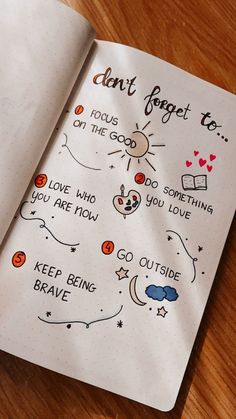 don't forget to...
1 FOCUS
ON THE GOOD
2 DO SOMETHING
YOU LOVE
3 LOVE WHO
YOU ARE NOW
4 GO OUTSIDE
5 KEEP BEING
BRAVE